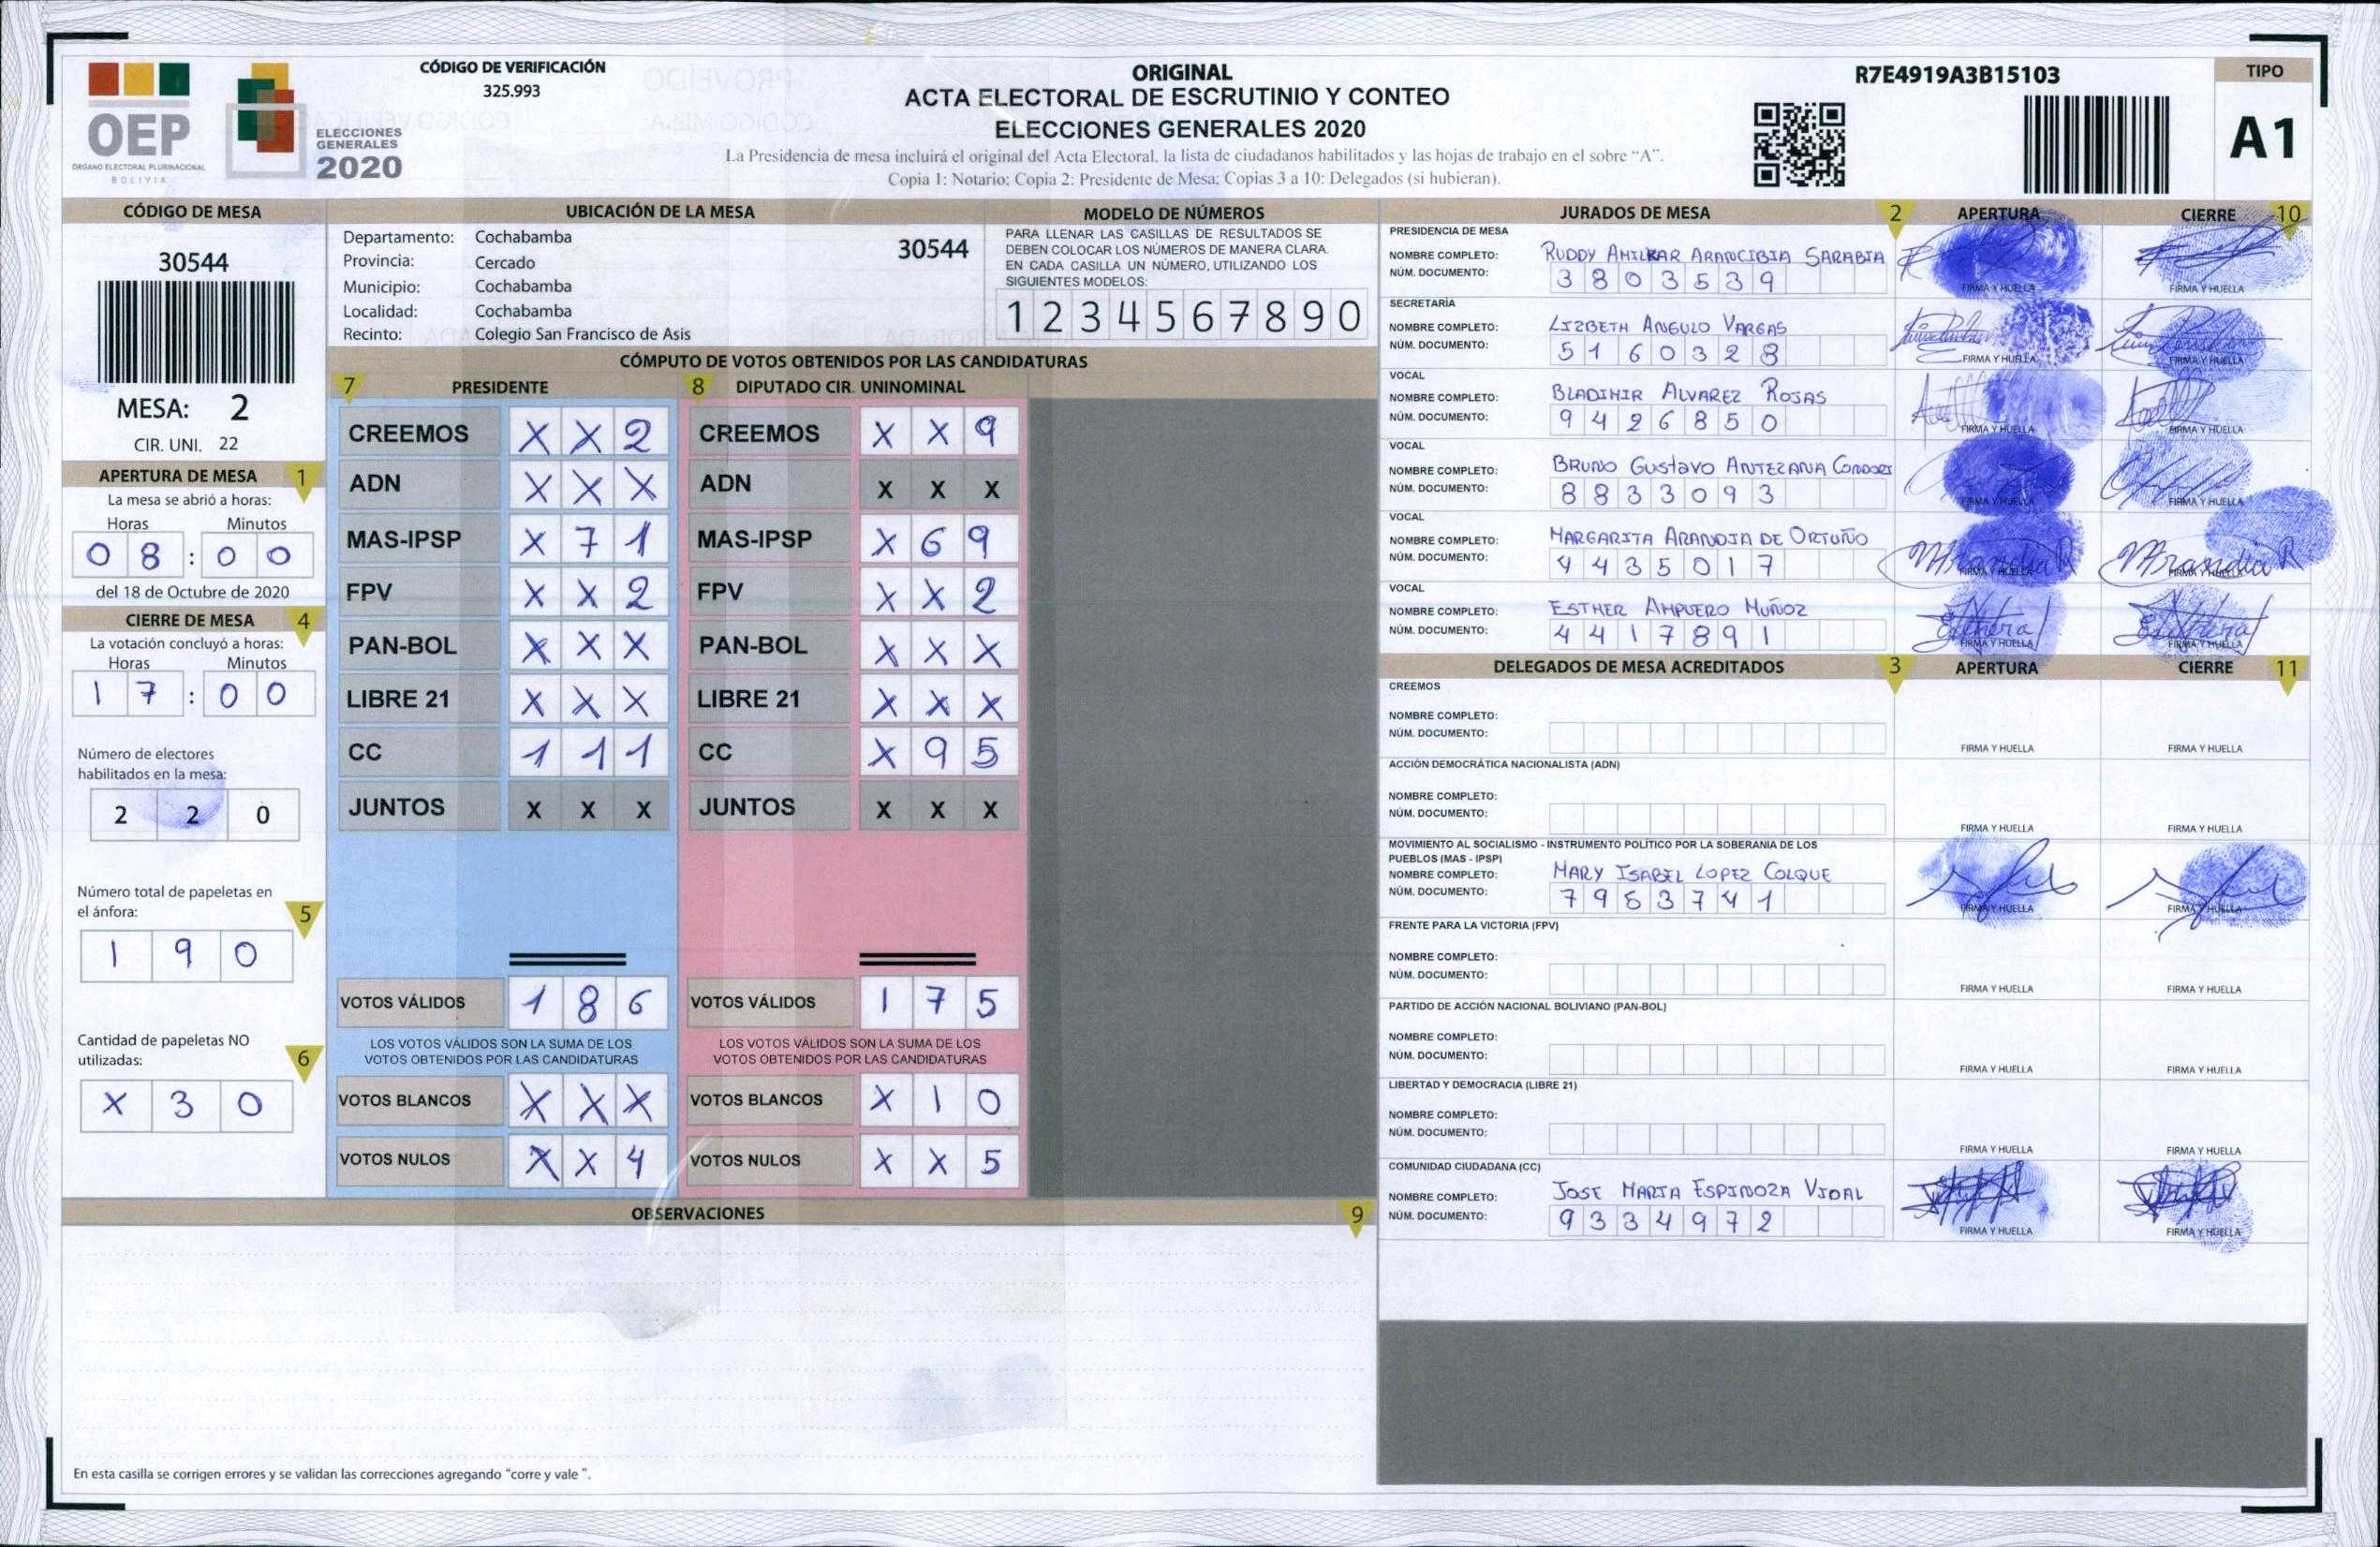 OEP
ÓRGANO ELECTORAL PLURINACIONAL
BOLIVIA
ELECCIONES
GENERALES
2020
CÓDIGO DE VERIFICACIÓN
325.993
ORIGINAL
ACTA ELECTORAL DE ESCRUTINIO Y CONTEO
ELECCIONES GENERALES 2020
La Presidencia de mesa incluirá el original del Acta Electoral, la lista de ciudadanos habilitados y las hojas de trabajo en el sobre “A”.
Copia 1: Notario; Copia 2: Presidente de Mesa; Copias 3 a 10: Delegados (si hubieran).
R7E4919A3B15103
TIPO
A1
CÓDIGO DE MESA
30544
MESA: 2
CIR. UNI. 22
APERTURA DE MESA 1
La mesa se abrió a horas:
Horas Minutos
0 8 : 0 0
del 18 de Octubre de 2020
CIERRE DE MESA 4
La votación concluyó a horas:
Horas Minutos
1 7 : 0 0
Número de electores
habilitados en la mesa:
2 2 0
Número total de papeletas en
el ánfora: 5
1 9 0
Cantidad de papeletas NO
utilizadas: 6
X 3 0
UBICACIÓN DE LA MESA
Departamento: Cochabamba 30544
Provincia: Cercado
Municipio: Cochabamba
Localidad: Cochabamba
Recinto: Colegio San Francisco de Asis
MODELO DE NÚMEROS
PARA LLENAR LAS CASILLAS DE RESULTADOS SE
DEBEN COLOCAR LOS NÚMEROS DE MANERA CLARA.
EN CADA CASILLA UN NÚMERO, UTILIZANDO LOS
SIGUIENTES MODELOS:
1 2 3 4 5 6 7 8 9 0
CÓMPUTO DE VOTOS OBTENIDOS POR LAS CANDIDATURAS
7 PRESIDENTE 8 DIPUTADO CIR. UNINOMINAL
CREEMOS X X 2 CREEMOS X X 9
ADN X X X ADN X X X
MAS-IPSP X 7 1 MAS-IPSP X 6 9
FPV X X 2 FPV X X 2
PAN-BOL X X X PAN-BOL X X X
LIBRE 21 X X X LIBRE 21 X X X
CC 1 1 1 CC X 9 5
JUNTOS X X X JUNTOS X X X
VOTOS VÁLIDOS 1 8 6 VOTOS VÁLIDOS 1 7 5
LOS VOTOS VÁLIDOS SON LA SUMA DE LOS LOS VOTOS VÁLIDOS SON LA SUMA DE LOS
VOTOS OBTENIDOS POR LAS CANDIDATURAS VOTOS OBTENIDOS POR LAS CANDIDATURAS
VOTOS BLANCOS X X X VOTOS BLANCOS X 1 0
VOTOS NULOS X X 4 VOTOS NULOS X X 5
OBSERVACIONES 9
En esta casilla se corrigen errores y se validan las correcciones agregando “corre y vale ”.
JURADOS DE MESA 2 APERTURA CIERRE 10
PRESIDENCIA DE MESA
NOMBRE COMPLETO: RUDDY AMILKAR ARANCIBIA SARABIA
NÚM. DOCUMENTO: 3 8 0 3 5 3 9
FIRMA Y HUELLA FIRMA Y HUELLA
SECRETARÍA
NOMBRE COMPLETO: LIZBETH ANGULO VARGAS
NÚM. DOCUMENTO: 5 1 6 0 3 2 8
FIRMA Y HUELLA FIRMA Y HUELLA
VOCAL
NOMBRE COMPLETO: BLADIMIR ALVAREZ ROJAS
NÚM. DOCUMENTO: 9 4 2 6 8 5 0
FIRMA Y HUELLA FIRMA Y HUELLA
VOCAL
NOMBRE COMPLETO: BRUNO GUSTAVO ANTEZANA CONDORI
NÚM. DOCUMENTO: 8 8 3 3 0 9 3
FIRMA Y HUELLA FIRMA Y HUELLA
VOCAL
NOMBRE COMPLETO: MARGARITA ARANDIA DE ORTUÑO
NÚM. DOCUMENTO: 4 4 3 5 0 1 7
FIRMA Y HUELLA FIRMA Y HUELLA
VOCAL
NOMBRE COMPLETO: ESTHER AMPUERO MUÑOZ
NÚM. DOCUMENTO: 4 4 1 7 8 9 1
FIRMA Y HUELLA FIRMA Y HUELLA
DELEGADOS DE MESA ACREDITADOS 3 APERTURA CIERRE 11
CREEMOS
NOMBRE COMPLETO:
NÚM. DOCUMENTO:
FIRMA Y HUELLA FIRMA Y HUELLA
ACCIÓN DEMOCRÁTICA NACIONALISTA (ADN)
NOMBRE COMPLETO:
NÚM. DOCUMENTO:
FIRMA Y HUELLA FIRMA Y HUELLA
MOVIMIENTO AL SOCIALISMO - INSTRUMENTO POLÍTICO POR LA SOBERANIA DE LOS
PUEBLOS (MAS - IPSP)
NOMBRE COMPLETO: MARY ISABEL LOPEZ COLQUE
NÚM. DOCUMENTO: 7 9 5 3 7 4 1
FIRMA Y HUELLA FIRMA Y HUELLA
FRENTE PARA LA VICTORIA (FPV)
NOMBRE COMPLETO:
NÚM. DOCUMENTO:
FIRMA Y HUELLA FIRMA Y HUELLA
PARTIDO DE ACCIÓN NACIONAL BOLIVIANO (PAN-BOL)
NOMBRE COMPLETO:
NÚM. DOCUMENTO:
FIRMA Y HUELLA FIRMA Y HUELLA
LIBERTAD Y DEMOCRACIA (LIBRE 21)
NOMBRE COMPLETO:
NÚM. DOCUMENTO:
FIRMA Y HUELLA FIRMA Y HUELLA
COMUNIDAD CIUDADANA (CC)
NOMBRE COMPLETO: JOSE MARIA ESPINOZA VIDAL
NÚM. DOCUMENTO: 9 3 3 4 9 7 2
FIRMA Y HUELLA FIRMA Y HUELLA